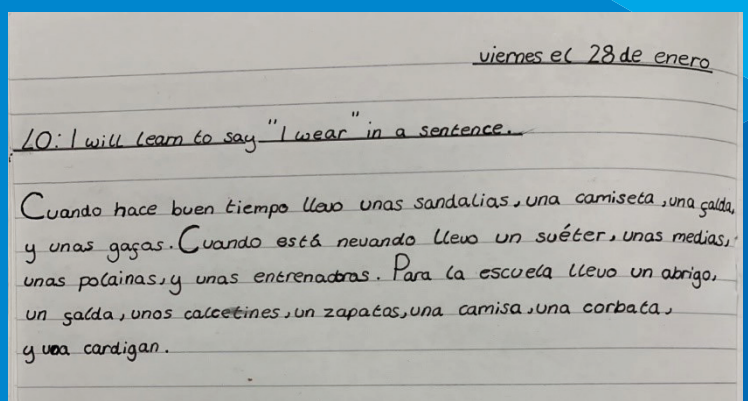 viernes el 28 de enero
LO: I will learn to say "I wear" in a sentence.
Cuando hace buen tiempo llevo unas sandalias, una camiseta, una galda,
y unas gagas. Cuando está nevando llevo un suéter, unas medias,
unas polainas, y unas entrenadoras. Para la escuela llevo un abrigo,
un galda, unos calcetines, un zapatas, una camisa, una corbata,
y una cardigan.